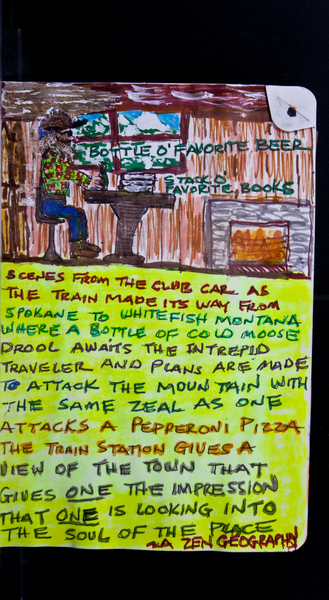 BOTTLE O' FAVORITE BEER
STACK O'
FAVORITE BOOKS
SCENES FROM THE CLUB CAR AS
THE TRAIN MADE ITS WAY FROM
SPOKANE TO WHITEFISH MONTANA
WHERE A BOTTLE OF COLD MOOSE
DROOL AWAITS THE INTREPID
TRAVELER AND PLANS ARE MADE
TO ATTACK THE MOUNTAIN WITH
THE SAME ZEAL AS ONE
ATTACKS A PEPPERONI PIZZA
THE TRAIN STATION GIVES A
VIEW OF THE TOWN THAT
GIVES ONE THE IMPRESSION
THAT ONE IS LOOKING INTO
THE SOUL OF THE PLACE
~A ZEN GEOGRAPHY